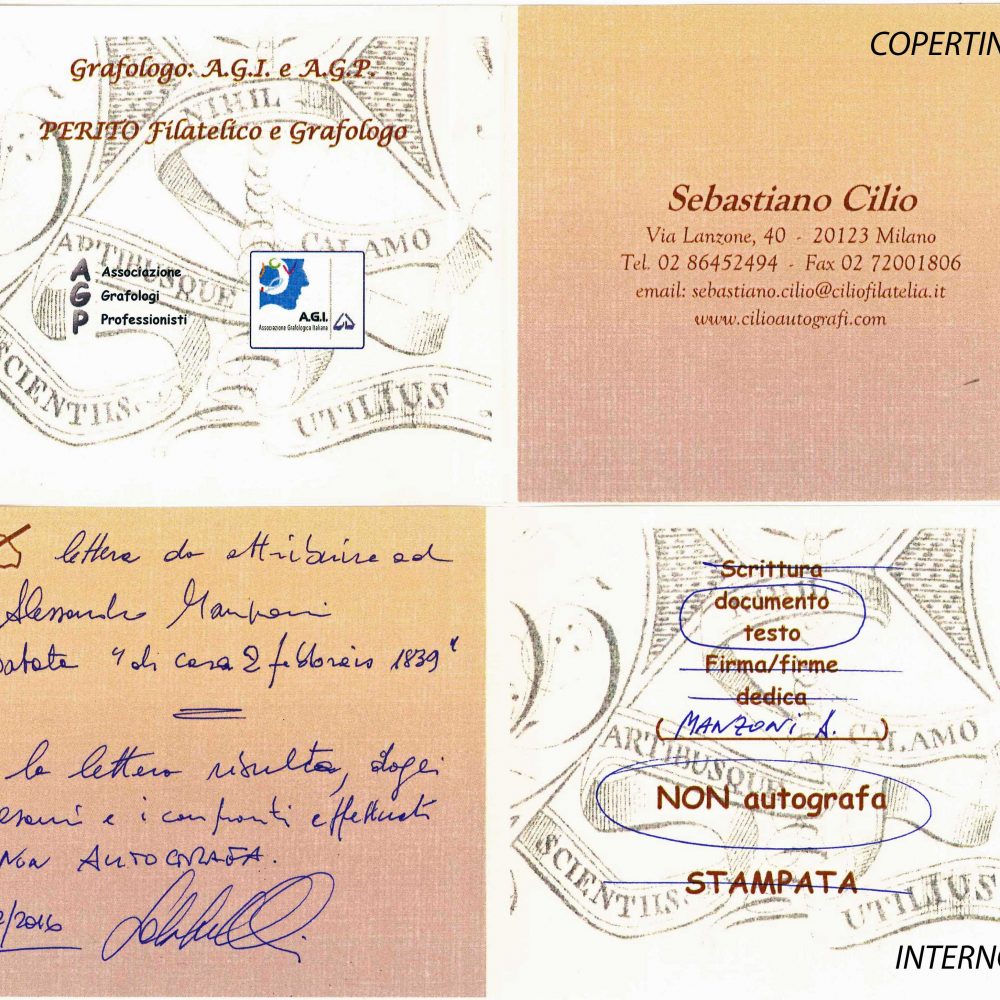 COPERTIN
Grafologo: A.G.I. e A.G.P.
NIHIL
PERITO Filatelico e Grafologo
ARTIBUSQUE
CALAMO
A Associazione
G Grafologi
P Professionisti
A.G.I.
Associazione Grafologica Italiana
SCIENTIIS.
UTILIUS
Sebastiano Cilio
Via Lanzone, 40 - 20123 Milano
Tel. 02 86452494 - Fax 02 72001806
email: sebastiano.cilio@ciliofilatelia.it
www.cilioautografi.com
lettera da attribuire ad
Alessandro Manzoni
datata "di casa 2 febbraio 1839"
la lettera risulta, dagli
esami e i confronti effettuati
NON AUTOGRAFA.
/2016
Scrittura
documento
testo
Firma/firme
dedica
( MANZONI A. )
ARTIBUSQUE
CALAMO
NON autografa
SCIENTIIS.
STAMPATA
UTILIUS
INTERNO